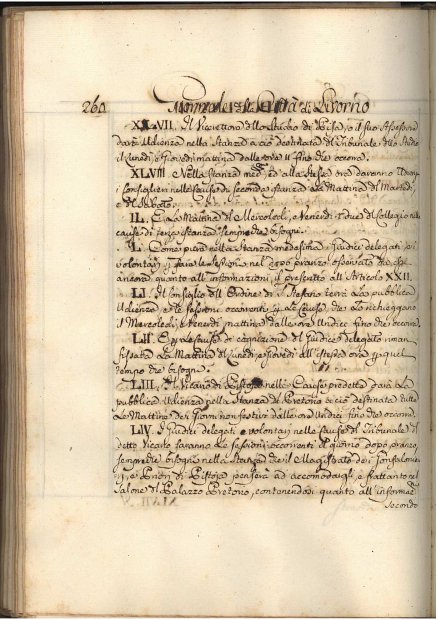 260 Giornale della Città di Livorno
XLVII. Il Provveditore dello Studio di Pisa, o il suo Assessore
darà Udienza nella Stanza a ciò destinata del Tribunale dello Studio
il Lunedì, e Giovedì mattina dalle ore 11 fino che occorra.
XLVIII. Nella Stanza med. ed alla stessa ora daranno Udienza
i Consiglieri nelle Cause di seconda istanza la Mattina di Martedì,
e di Sabato.
IL. E la Mattina di Mercoledì, e Venerdì i due di Collegio nelle
cause di terza istanza sempre che bisogni.
L. Come pure nella Stanza medesima i Giudici delegati, o i
volontarj faranno le sessioni nel dopo pranzo osservato che sia
ancora quanto all'informazioni, il prescritto all'Articolo XXII.
LI. Il Consiglio dell'Ordine di S. Stefano terrà la pubblica
Udienza, e le sessioni occorrenti per le Cause che lo richieggano
il Mercoledì, e Venerdì mattina dalle ore Undici fino che occorra.
LII. E per le cause di cognizione del Giudice delegato riman
fissata la Mattina del Lunedì, e Giovedì all'istessa ora per quel
tempo che bisogni.
LIII. Il Vicario di Pistoja nelle Cause predette darà la
pubblica Udienza nella Stanza del Pretorio a ciò destinata tutte
le Mattine dei Giorni non festivi dalle ore Undici fino che occorra.
LIV. I Giudici delegati, e volontarj nelle cause del Tribunale di
detto Vicario faranno le sessioni occorrenti il giorno dopo pranzo,
sempre che bisogni nella Stanza che il Magistrato dei Gonfalonie-
ri, e Priori di Pistoja penserà ad accomodargli, e frattanto nel
Salone del Palazzo Pretorio, contenendosi quanto all'informaz.
secondo